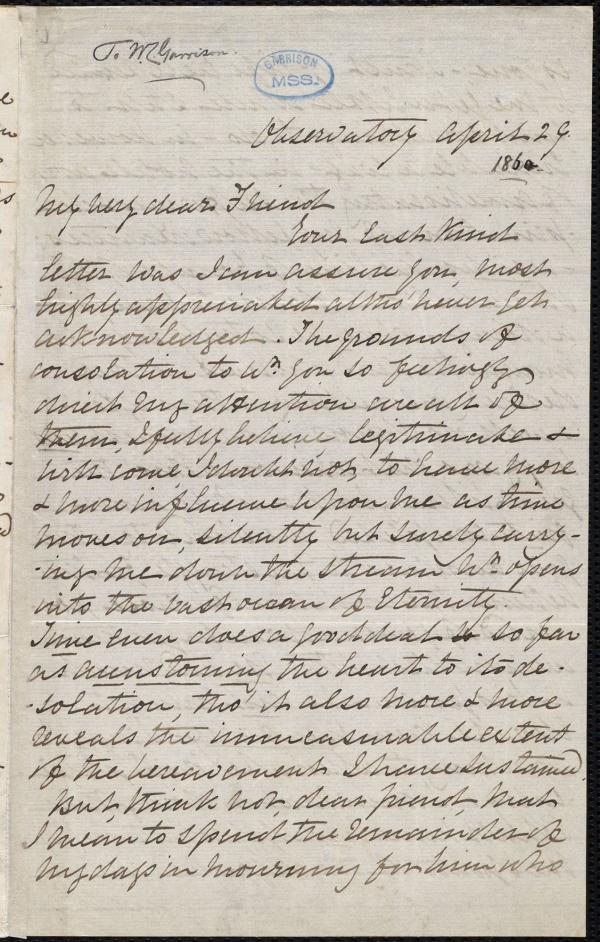 To W. L. Garrison.
GARRISON
MSS.
Observatory April 29
1860
My very dear Friend
Your last kind
letter was I can assure you, most
highly appreciated altho' never yet
acknowledged. The grounds of
consolation to wh. you so feelingly
direct my attention are all of
them, I fully believe, legitimate &
will come, I doubt not, to have more
& more influence upon me as time
moves on, silently but surely carry-
-ing me down the stream wh. opens
into the vast ocean of Eternity.
Time even does a good deal so far
as accustoming the heart to its de-
-solation, tho' it also more & more
reveals the immeasurable extent
of the bereavement I have sustained.
But, think not, dear friend, that
I mean to spend the remainder of
my days in mourning for him who